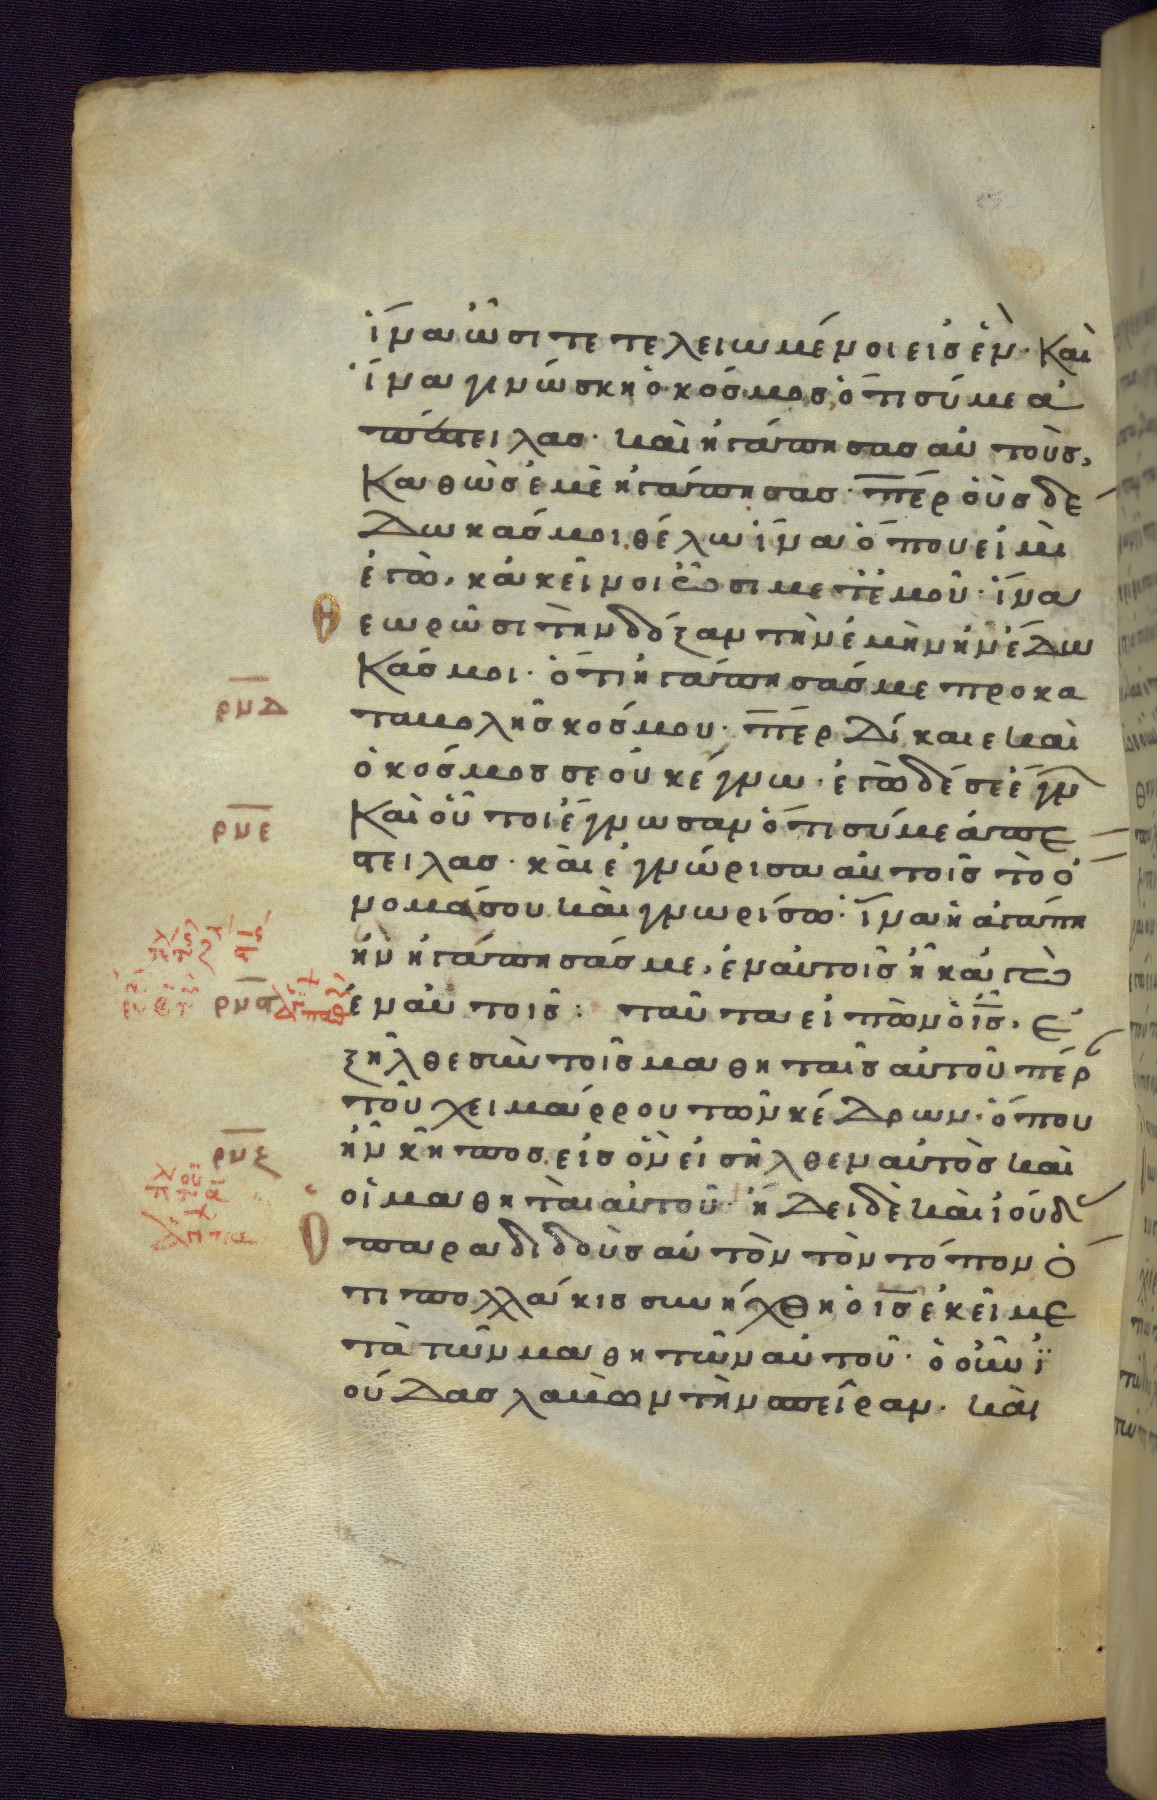 ἵνα ὦσι τετελειωμένοι εἰς ἕν· Καὶ
ἵνα γινώσκη ὁ κόσμος ὅτι σύ με ἀ
πέστειλας· καὶ ἠγάπησας αὐτοὺς,
Καθὼς ἐμὲ ἠγάπησας· π̅ε̅ρ οὓς δέ
δωκάς μοι θέλω ἵνα ὅπου εἰμὶ
ἐγὼ, κἀκεῖνοι ὦσι μετ ἐμοῦ· ἵνα
Θεωρῶσι τὴν δόξαν τὴν ἐμὴν ἣν ἔδω
Κάς μοι· ὅτι ἠγάπησάς με προ κα
ρνδ
ταβολῆς κόσμου· π̅ε̅ρ δίκαιε καὶ
ὁ κόσμος σε οὐκ ἔγνω· ἐγὼ δέ σε ἔγν
ρνε
Καὶ οὗτοι ἔγνωσαν ὅτι σύ με ἀπέ
στειλας· καὶ ἐγνώρισα αὐτοῖς τὸ ὄ
νομά σου καὶ γνωρίσω· ἵνα ἡ ἀγάπη
ἣν ἠγάπησάς με, ἐν αὐτοῖς ἦ κἀγὼ
ρνς
ἐν αὐτοῖς: ταῦτα εἰπὼν ὁ ι̅ς̅, ἐ
ξῆλθε σὺν τοῖς μαθηταῖς αὐτοῦ πέρ
τοῦ χειμάρρου τῶν κέδρων· ὅπου
ρνζ
ἦν κῆπος εἰς ὃν εἰσῆλθεν αὐτὸς καὶ
οἱ μαθηταὶ αὐτοῦ· ἤδει δὲ καὶ ἰούδ
Ο παραδιδοὺς αὐτὸν τὸν τόπον ὅ
τι πολλάκις συνήχθη ὁ ι̅ς̅ ἐκεῖ με
τὰ τῶν μαθητῶν αὐτοῦ· ὁ οὖν ἰ
ούδας λαβὼν τὴν σπεῖραν· καὶ